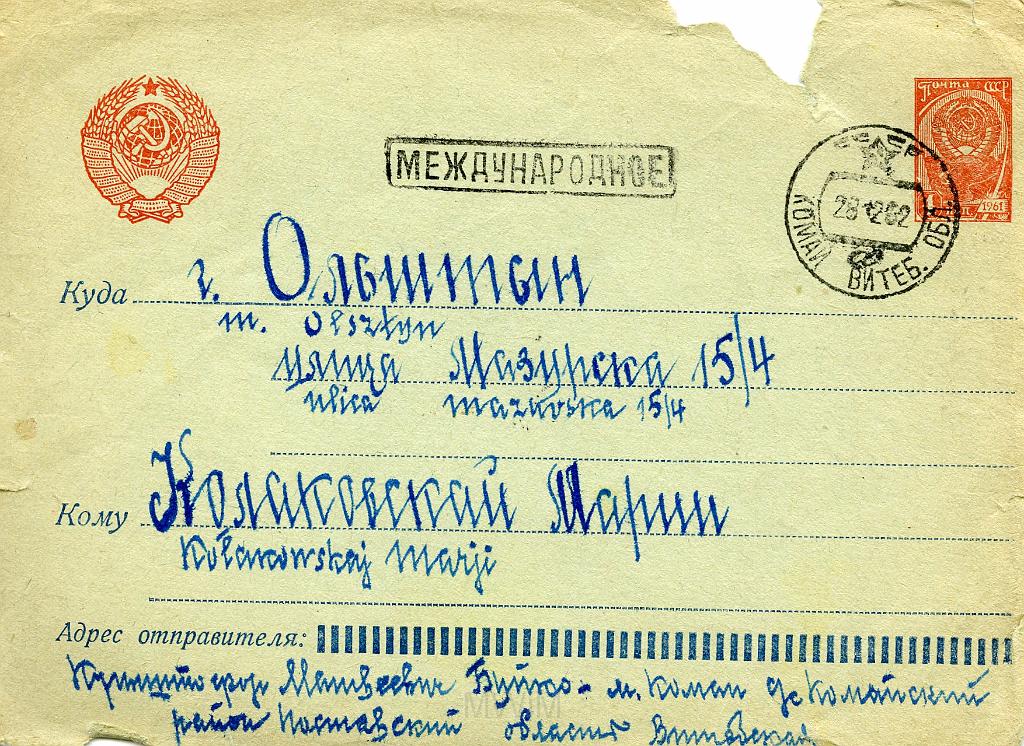 Почта СССР
1961
МЕЖДУНАРОДНОЕ
КОМАИ ВИТЕБ. ОБЛ.
Куда г. Ольштын
m. Olsztyn
улица Мазурска 15/4
ulica mazurska 15/4
Кому Колаковскай Марии
Kołakowskaj Marji
Адрес отправителя:
Матвеевич Буйко - м. Комаи
район Поставский областя Витебская